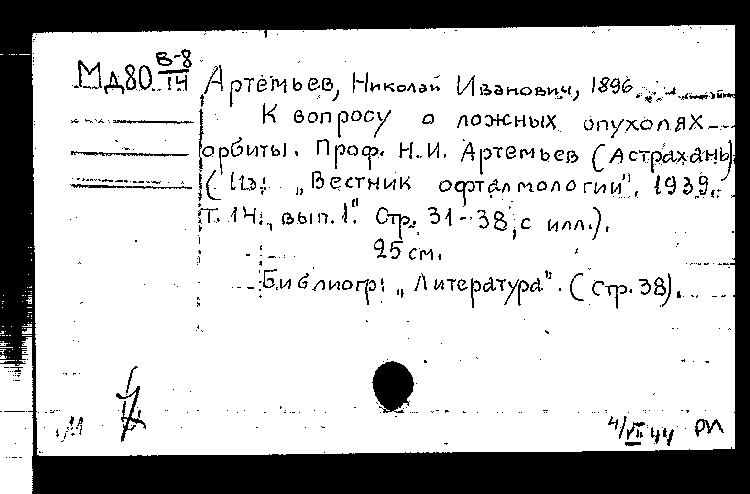 Мд80 В-8/14
Артемьев, Николай Иванович, 1896
К вопросу о ложных опухолях
орбиты. Проф. Н.И. Артемьев (Астрахань)
(Из: „Вестник офталмологии", 1939.
Т. 14, вып. 1. Стр. 31-38, с илл.).
25 см.
Библиогр: „Литература". (Стр. 38).
4/VII 44 РЛ